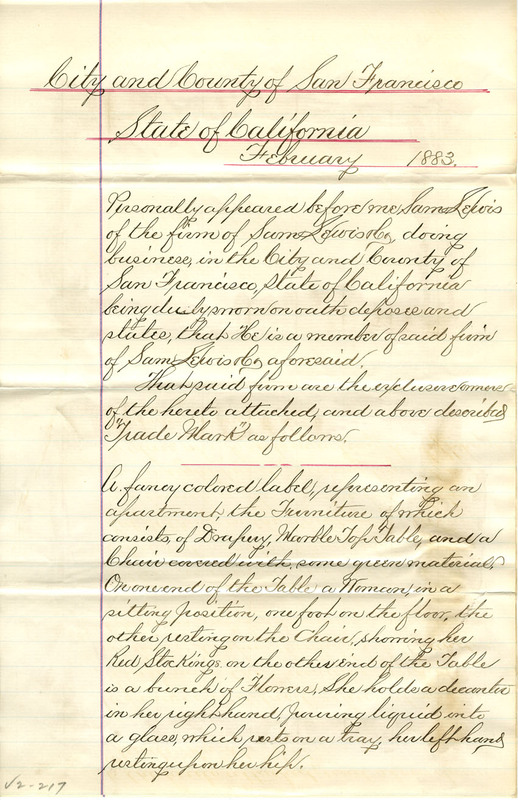 City and County of San Francisco
State of California
February 1883.
Personally appeared before me Sam Lewis
of the firm of Sam Lewis & Co, doing
business, in the City and County of
San Francisco, State of California
being duly sworn on oath deposes and
states, that He is a member of said firm
of Sam Lewis & Co, aforesaid.
That said firm are the exclusive owners
of the hereto attached, and above described
"Trade Mark" as follows.
A fancy colored label, representing an
apartment, the Furniture of which
consists, of Drapery, Marble Top Table, and a
Chair covered with, some green material,
On one end of the Table a Woman, in a
sitting position, one foot on the floor, the
other resting on the Chair, showing her
Red Stockings, on the other end of the Table
is a bunch of Flowers, She holds a decanter
in her right hand, pouring liquid into
a glass, which rests on a tray, her left hand
resting upon her hip.
V2-217